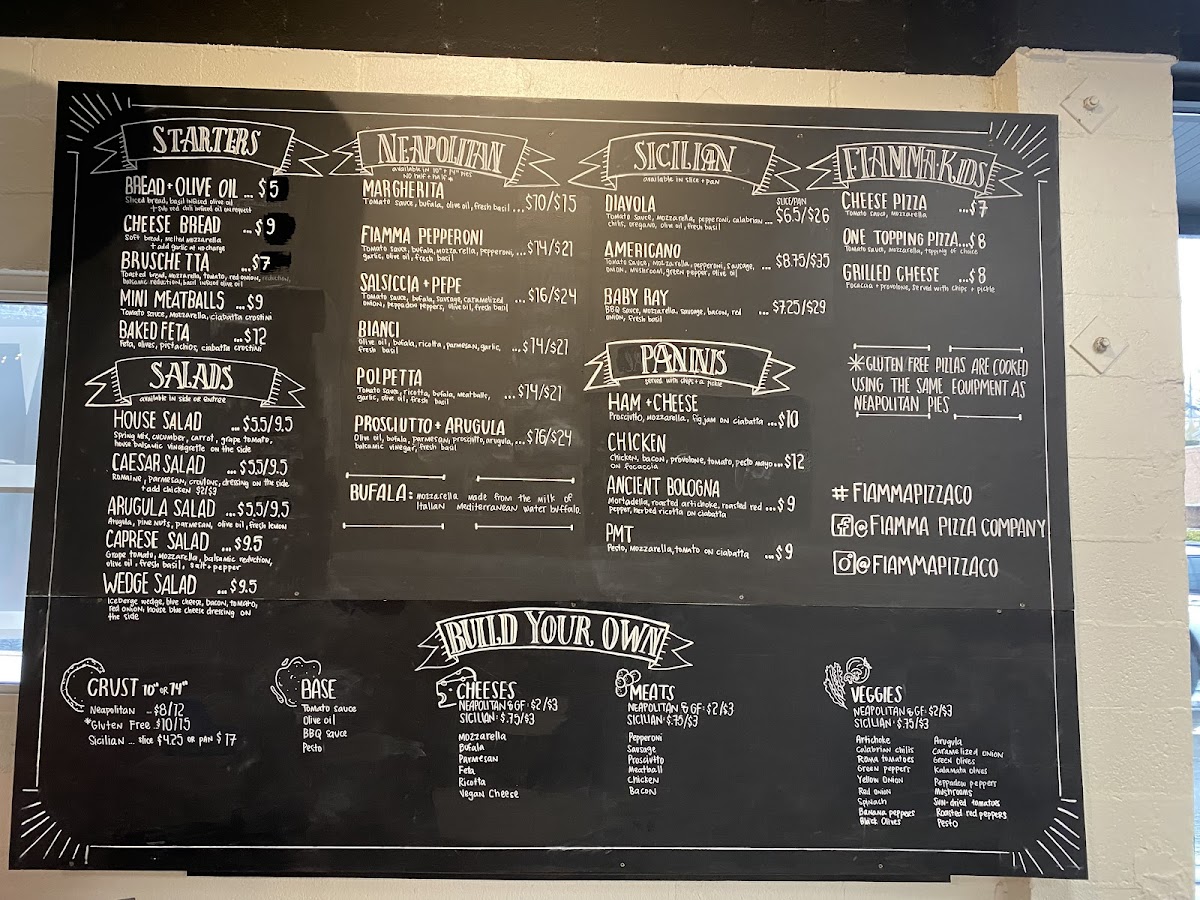 STARTERS
BREAD + OLIVE OIL ... $5
Sliced bread, basil infused olive oil
+ Sub red chili infused oil on request
CHEESE BREAD ... $9
Soft bread, melted mozzarella
+ add garlic at no charge
BRUSCHETTA ... $7
Toasted bread, mozzarella, tomato, red onion,
balsamic reduction, basil infused olive oil
MINI MEATBALLS ... $9
Tomato sauce, Mozzarella, ciabatta crostini
BAKED FETA ... $12
Feta, olives, pistachios, ciabatta crostini
SALADS
available in side or entree
HOUSE SALAD ... $5.5/9.5
Spring mix, cucumber, carrot, grape tomato,
house balsamic vinaigrette on the side
CAESAR SALAD ... $5.5/9.5
Romaine, parmesan, croutons, dressing on the side
+ add chicken $2/$3
ARUGULA SALAD ... $5.5/9.5
Arugula, pine nuts, parmesan, olive oil, fresh lemon
CAPRESE SALAD ... $9.5
Grape tomato, mozzarella, balsamic reduction,
olive oil, fresh basil, salt + pepper
WEDGE SALAD ... $9.5
Iceberge wedge, blue cheese, bacon, tomato,
red onion, house blue cheese dressing on
the side
NEAPOLITAN
available in 10" + 14" pies
NO half + half *
MARGHERITA
Tomato sauce, bufala, olive oil, fresh basil ... $10/$15
FIAMMA PEPPERONI
Tomato sauce, bufala, mozzarella, pepperoni, ... $14/$21
garlic, olive oil, fresh basil
SALSICCIA + PEPE
Tomato sauce, bufala, sausage, caramelized ... $16/$24
onion, peppadew peppers, olive oil, fresh basil
BIANCI
Olive oil, bufala, ricotta, parmesan, garlic, ... $14/$21
fresh basil
POLPETTA
Tomato sauce, ricotta, bufala, meatballs, ... $14/$21
garlic, olive oil, fresh basil
PROSCIUTTO + ARUGULA
Olive oil, bufala, parmesan, prosciutto, arugula, ... $16/$24
balsamic vinegar, fresh basil
BUFALA: mozzarella made from the milk of
Italian Mediterranean water buffalo.
SICILIAN
available in slice + pan
SLICE/PAN
DIAVOLA
Tomato sauce, mozzarella, pepperoni, calabrian ... $6.5/$26
chilis, oregano, olive oil, fresh basil
AMERICANO
Tomato sauce, mozzarella, pepperoni, sausage, ... $8.75/$35
onion, mushroom, green pepper, olive oil
BABY RAY
BBQ sauce, mozzarella, sausage, bacon, red ... $7.25/$29
onion, fresh basil
PANINIS
served with chips + a pickle
HAM + CHEESE
Prosciutto, mozzarella, fig jam on ciabatta ... $10
CHICKEN
Chicken, bacon, provolone, tomato, pesto mayo ... $12
on focaccia
ANCIENT BOLOGNA
Mortadella, roasted artichoke, roasted red ... $9
pepper, herbed ricotta on ciabatta
PMT
Pesto, mozzarella, tomato on ciabatta ... $9
FIAMMAKIDS
CHEESE PIZZA ... $7
Tomato sauce, mozzarella
ONE TOPPING PIZZA ... $8
Tomato sauce, mozzarella, topping of choice
GRILLED CHEESE ... $8
Focacca + provolone, served with chips + pickle
*GLUTEN FREE PIZZAS ARE COOKED
USING THE SAME EQUIPMENT AS
NEAPOLITAN PIES
#FIAMMAPIZZACO
f @FIAMMA PIZZA COMPANY
@FIAMMAPIZZACO
BUILD YOUR OWN
CRUST 10" OR 14"
Neapolitan ... $8/12
*Gluten Free $10/15
Sicilian ... slice $4.25 or pan $17
BASE
Tomato sauce
Olive oil
BBQ sauce
Pesto
CHEESES
NEAPOLITAN & GF: $2/$3
SICILIAN: $.75/$3
Mozzarella
Bufala
Parmesan
Feta
Ricotta
Vegan Cheese
MEATS
NEAPOLITAN & GF: $2/$3
SICILIAN: $.75/$3
Pepperoni
Sausage
Prosciutto
Meatball
Chicken
Bacon
VEGGIES
NEAPOLITAN & GF: $2/$3
SICILIAN: $.75/$3
Artichoke
Calabrian chilis
Roma tomatoes
Green pepper
Yellow onion
Red onion
Spinach
Banana peppers
Black Olives
Arugula
Caramelized onion
Green olives
Kalamata olives
Peppadew pepper
Mushrooms
Sun-dried tomatoes
Roasted red peppers
Pesto